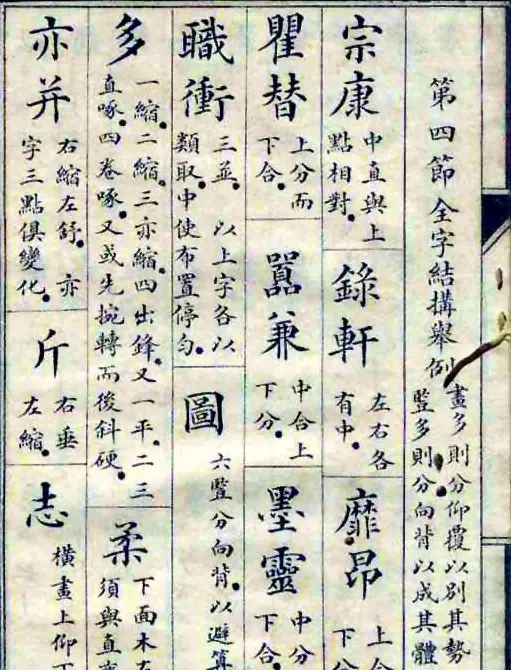 第四節全字結構舉例
畫多則分仰覆以別其勢
豎多則分向背以成其體
宗康
中直與上
點相對
錄軒
左右各
有中
靡昂
上
下
瞿替
上分而
下合
嚣兼
中合上
下分
墨靈
中分
下合
職衝
三並 以上字各以
類取中使布置停勻
圖
六豎分向背以避算
多
一縮二縮三亦縮四出鋒又一平二三
直啄四卷啄又或先捥轉而後斜硬
柔
下面木左
須與直
亦并
右縮左舒 亦
字三點俱變化
斤
右垂
左縮
志
橫畫上仰下